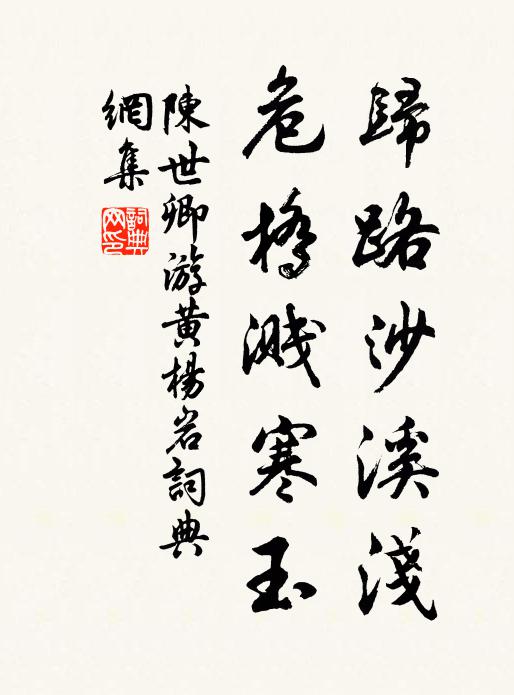 歸路沙溪淺
危橋濺寒玉
陳世卿游黃楊岩詞典
網集
詞典網印